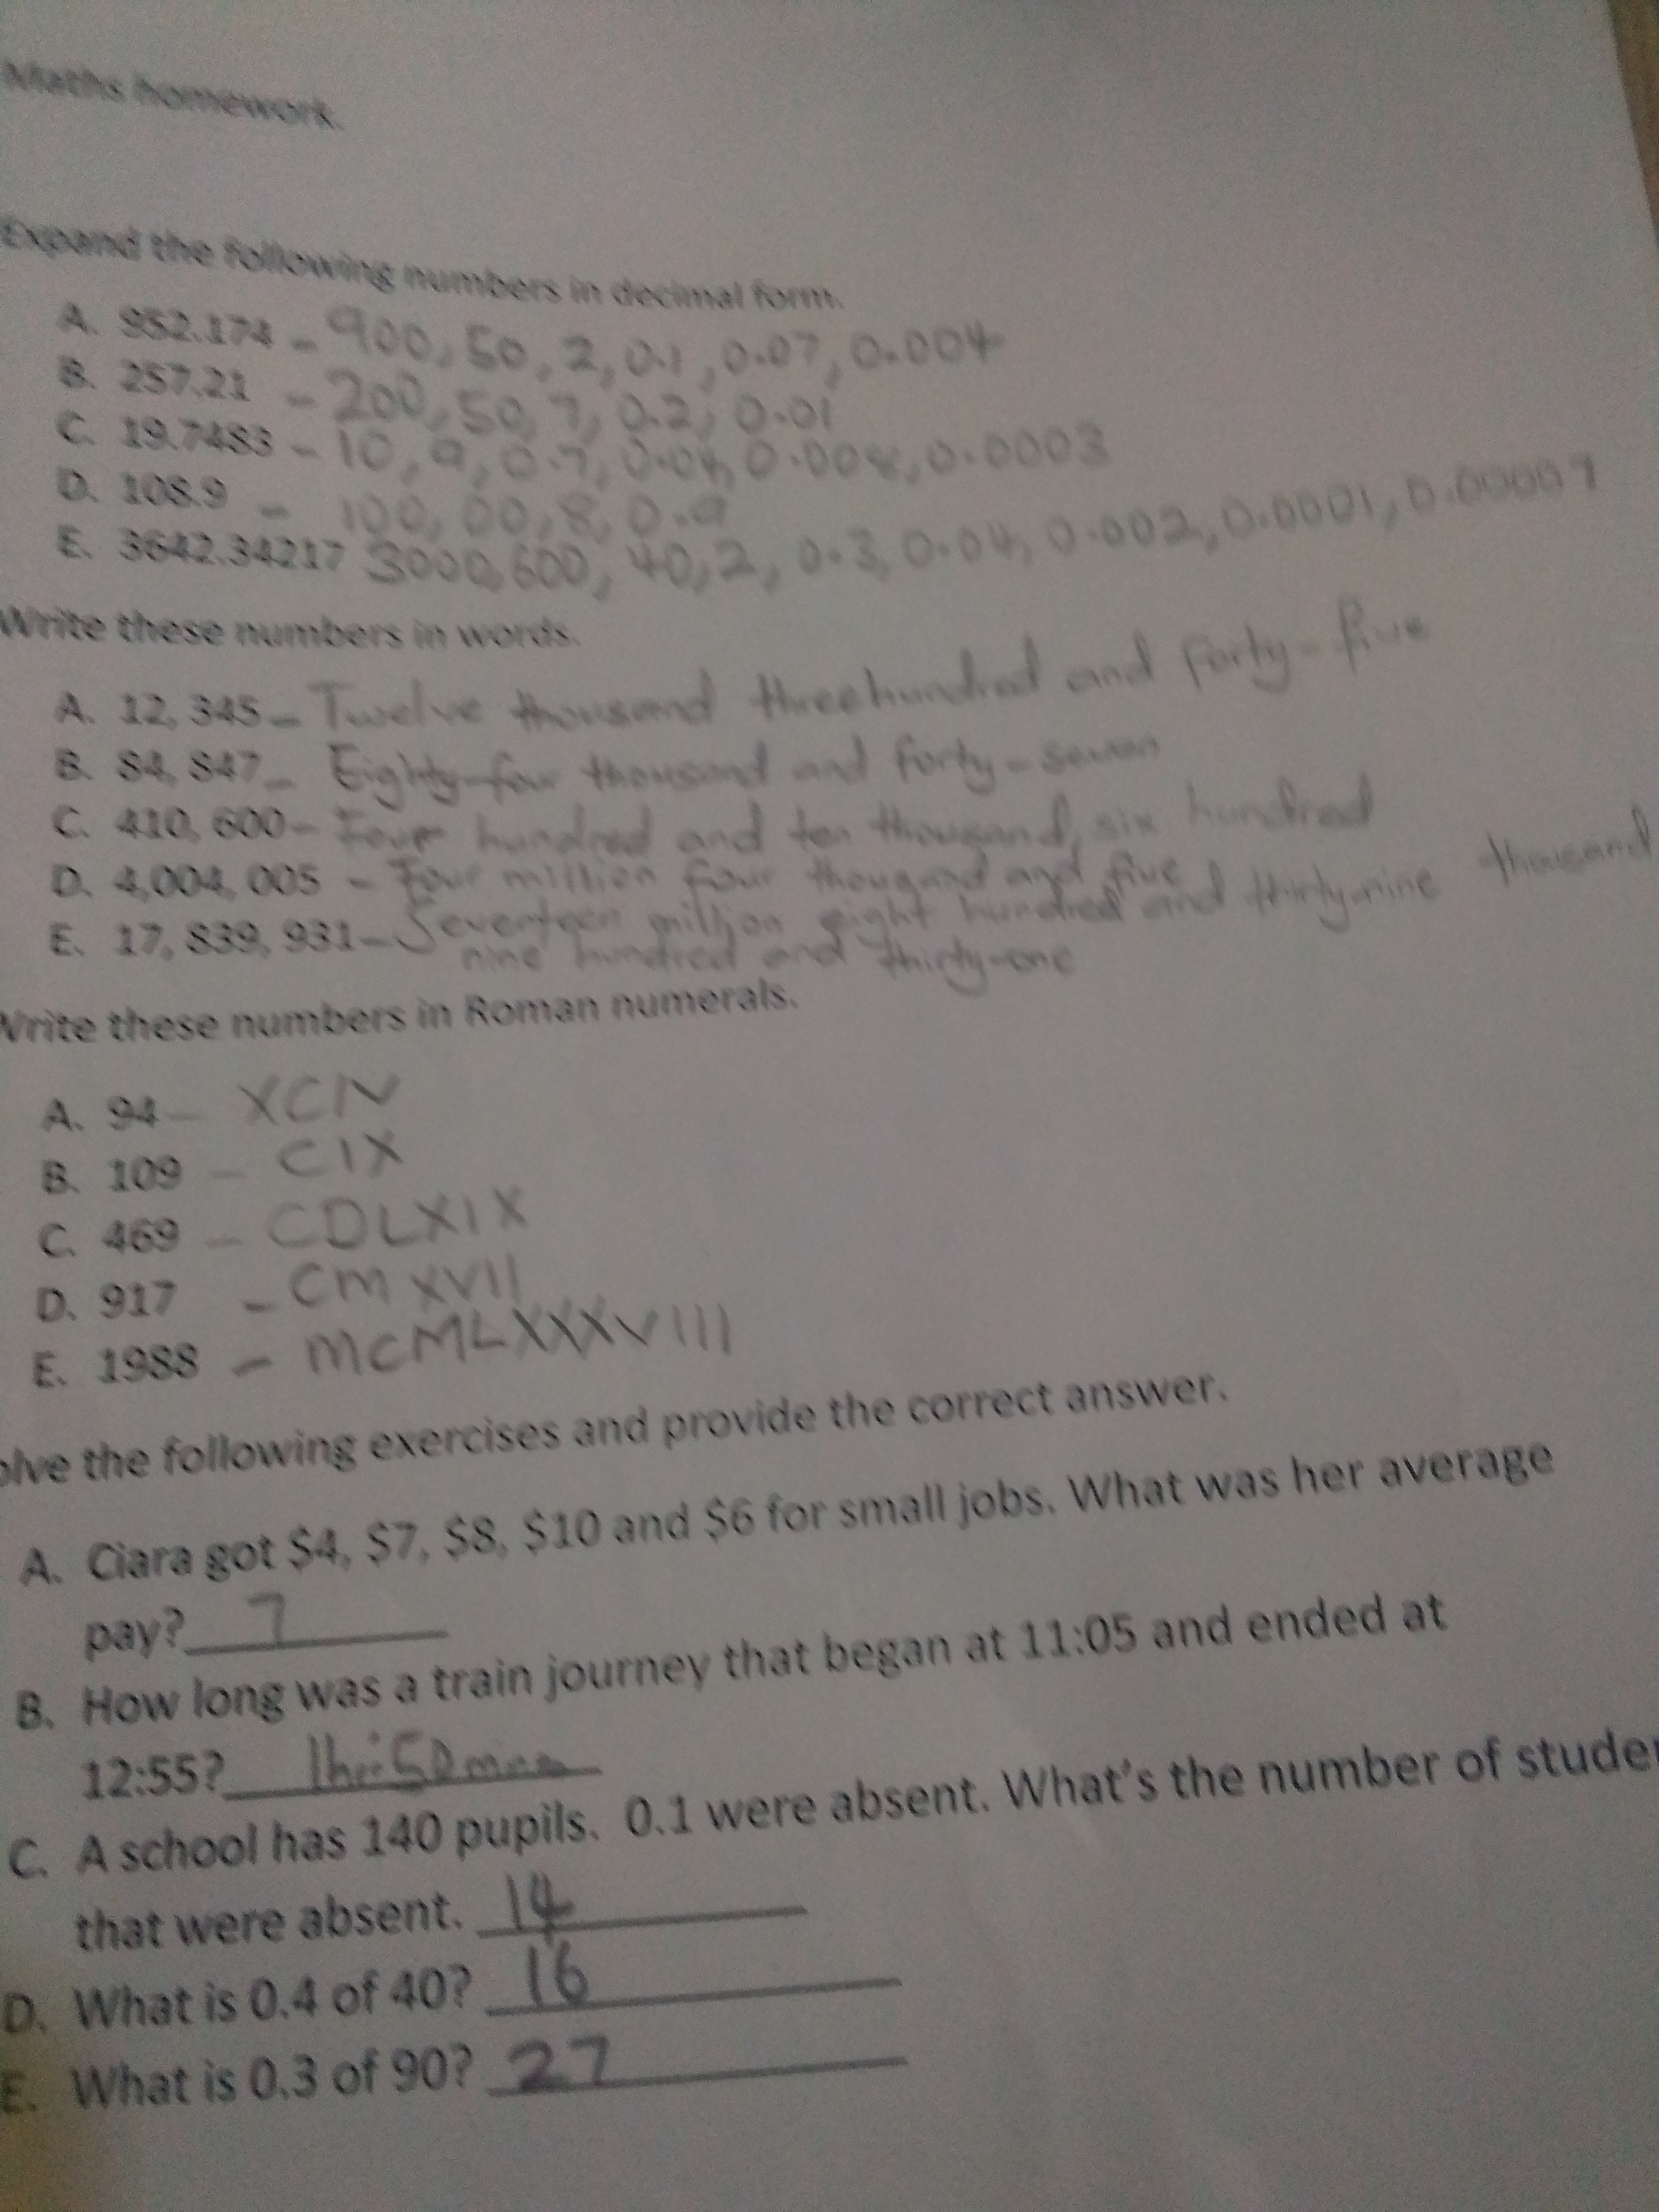 Maths homework.
Expand the following numbers in decimal form.
A. 952.174 - 900, 50, 2, 0.1, 0.07, 0.004
B. 257.21 - 200, 50, 7, 0.2, 0.01
C. 19.7483 - 10, 9, 0.7, 0.04, 0.008, 0.0003
D. 108.9 - 100, 00, 8, 0.9
E. 3642.34217 3000, 600, 40, 2, 0.3, 0.04, 0.002, 0.0001, 0.00007
Write these numbers in words.
A. 12, 345 - Twelve thousand three hundred and forty-five
B. 84, 847 - Eighty-four thousand and forty-seven
C. 410, 600 - Four hundred and ten thousand, six hundred
D. 4,004, 005 - Four million four thousand and five
E. 17, 839, 931 - Seventeen million eight hundred and thirty-nine thousand
nine hundred and thirty-one
Write these numbers in Roman numerals.
A. 94 - XCIV
B. 109 - CIX
C. 469 - CDLXIX
D. 917 - CMXVII
E. 1988 - MCMLXXXVIII
olve the following exercises and provide the correct answer.
A. Ciara got $4, $7, $8, $10 and $6 for small jobs. What was her average
pay? 7
B. How long was a train journey that began at 11:05 and ended at
12:55? 1hr:50mins
C. A school has 140 pupils. 0.1 were absent. What's the number of studen
that were absent. 14
D. What is 0.4 of 40? 16
E. What is 0.3 of 90? 27